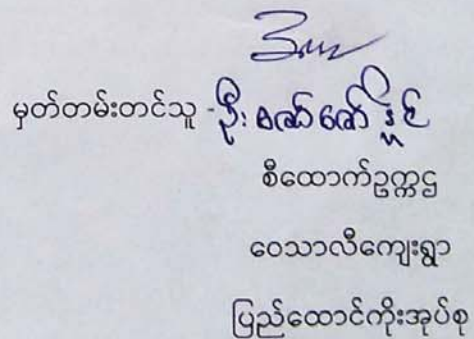 မှတ်တမ်းတင်သူ - ဦး ဇော်ဇော်နိုင်
စီထောက်ဥက္ကဋ္ဌ
ဝေသာလီကျေးရွာ
ပြည်ထောင်ကိုးအုပ်စု